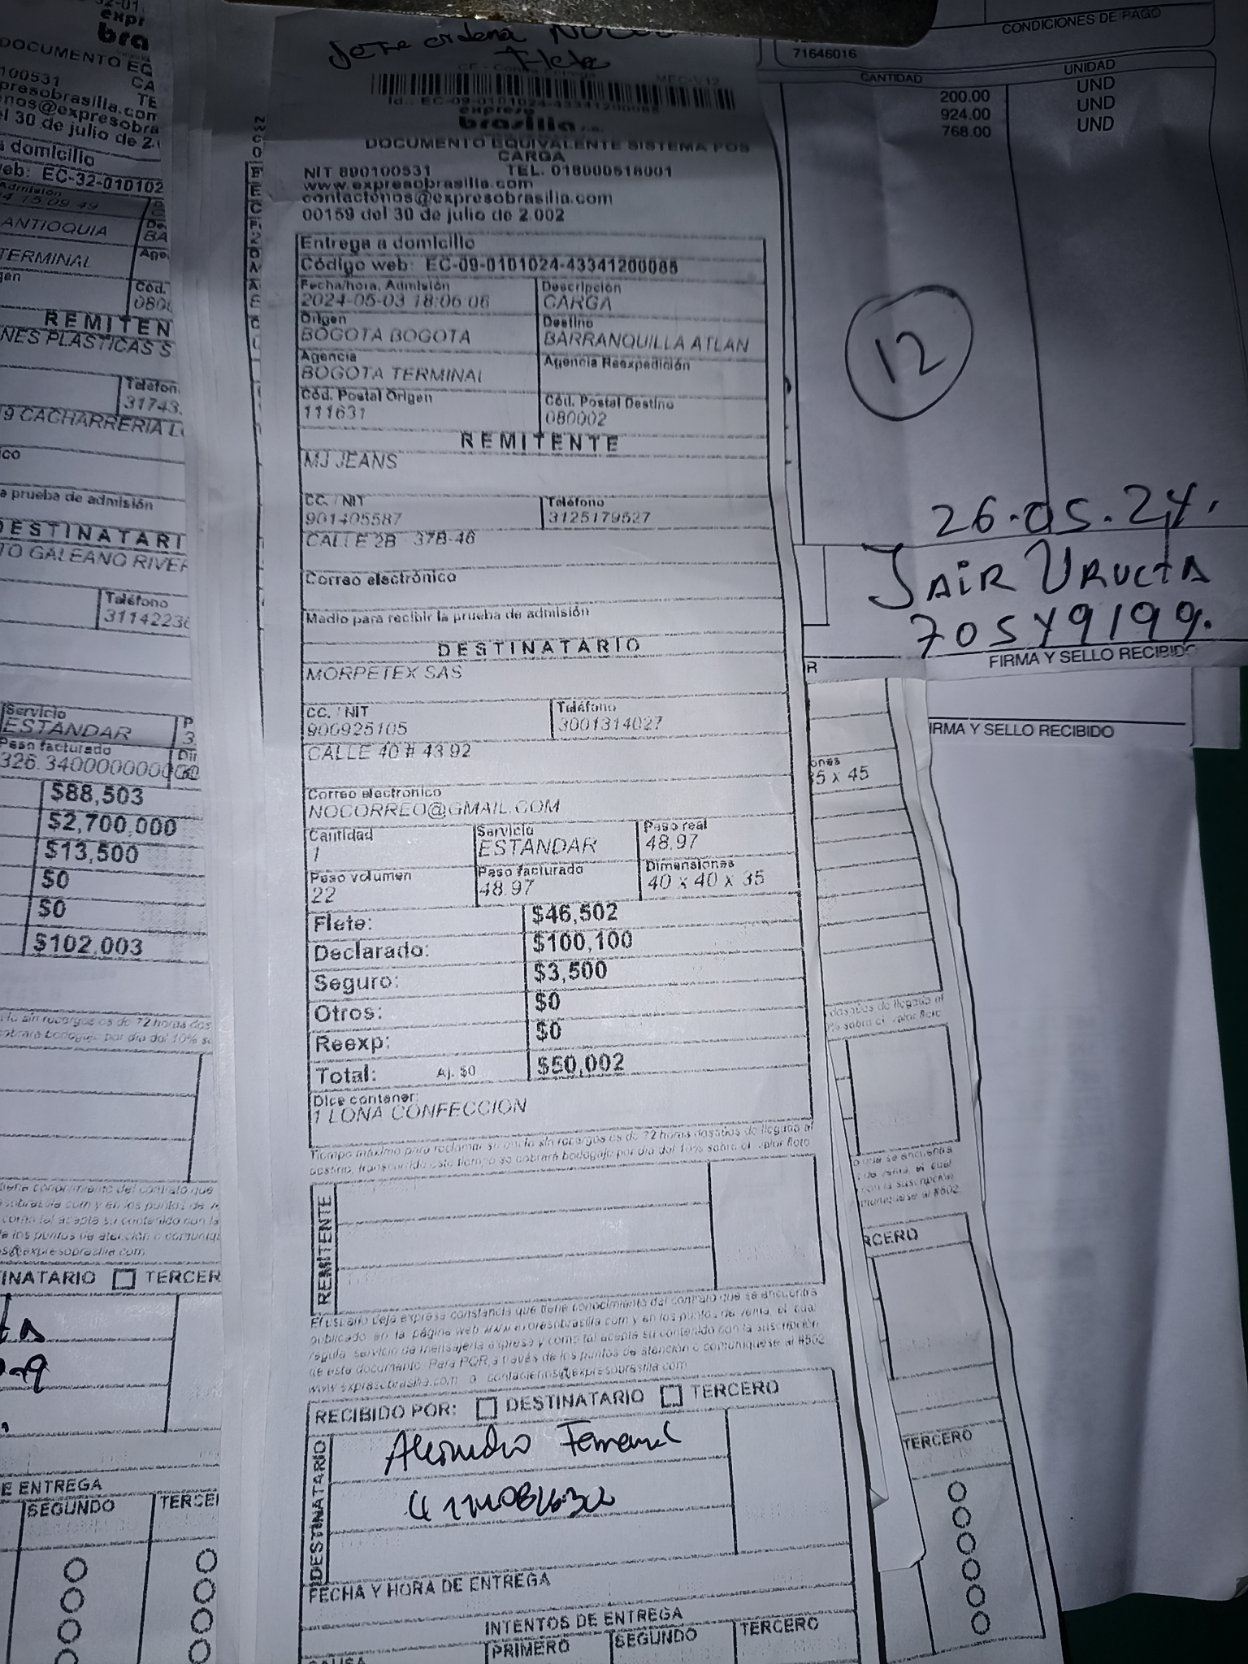 CONDICIONES DE PAGO
71646016
CANTIDAD UNIDAD
200.00 UND
924.00 UND
768.00 UND
12
26.05.24.
JAIR URUETA
FIRMA Y SELLO RECIBIDO
FIRMA Y SELLO RECIBIDO
Jefe ordena
Flete
expreso
brasilia
DOCUMENTO EQUIVALENTE SISTEMA POS
CARGA
NIT 890100531 TEL. 018000518001
www.expresobrasilia.com
contactenos@expresobrasilia.com
00159 del 30 de julio de 2.002
Entrega a domicilio
Código web: EC-09-0101024-43341200085
Fecha/hora, Admisión Descripción
2024-05-03 18:06:06 CARGA
Origen Destino
BOGOTA BOGOTA BARRANQUILLA ATLAN
Agencia Agencia Reexpedición
BOGOTA TERMINAL
Cód. Postal Origen Cód. Postal Destino
111631 080002
REMITENTE
MJ JEANS
CC. / NIT Teléfono
901405587 3125179527
CALLE 2B 37B-46
Correo electrónico
Medio para recibir la prueba de admisión
DESTINATARIO
MORPETEX SAS
CC. / NIT Teléfono
900925105 3001314027
CALLE 40 # 43 92
Correo electronico
NOCORREO@GMAIL.COM
Cantidad Servicio Peso real
1 ESTANDAR 48.97
Peso volumen Peso facturado Dimensiones
22 48.97 40 x 40 x 35
Flete: $46,502
Declarado: $100,100
Seguro: $3,500
Otros: $0
Reexp: $0
Total: Aj. $0 $50,002
Dice contener:
1 LONA CONFECCION
Tiempo máximo para reclamar su envío sin recargos es de 72 horas después de llegada al
destino, transcurrido este tiempo se cobrará bodegaje por día del 10% sobre el valor flete
REMITENTE
El usuario deja expresa constancia que tiene conocimiento del contrato que se encuentra
publicado en la página web www.expresobrasilia.com y en los puntos de venta, el cual
regula servicio de mensajería expresa y como tal acepta su contenido con la suscripción
de este documento. Para PQR a través de los puntos de atención o comuníquese al #502
www.expresobrasilia.com o contactenos@expresobrasilia.com
RECIBIDO POR: DESTINATARIO TERCERO
DESTINATARIO
FECHA Y HORA DE ENTREGA
INTENTOS DE ENTREGA
PRIMERO SEGUNDO TERCERO
CAUSA
bra
DOCUMENTO EQ
100531 CA
TE
l 30 de julio de 2.
domicilio
eb: EC-32-010102
Admisión
ANTIOQUIA
TERMINAL
REMITEN
NES PLASTICAS S
Teléfon
31743
9 CACHARRERIA L
a prueba de admisión
DESTINATARI
TO GALEANO RIVER
Teléfono
31142236
Servicio
ESTANDAR
Peso facturado
$88,503
$2,700,000
$13,500
$0
$0
$102,003
INATARIO TERCER
E ENTREGA
SEGUNDO TERCE
5 x 45
RCERO
TERCERO